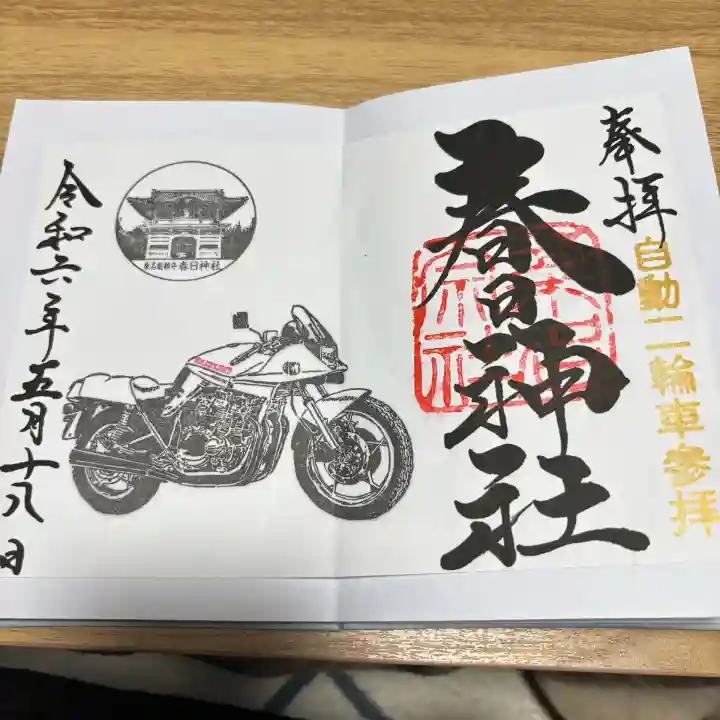 奉拝
自動二輪車参拝
春日神社
桑名鎮守 春日神社
SUZUKI
令和六年五月十八日